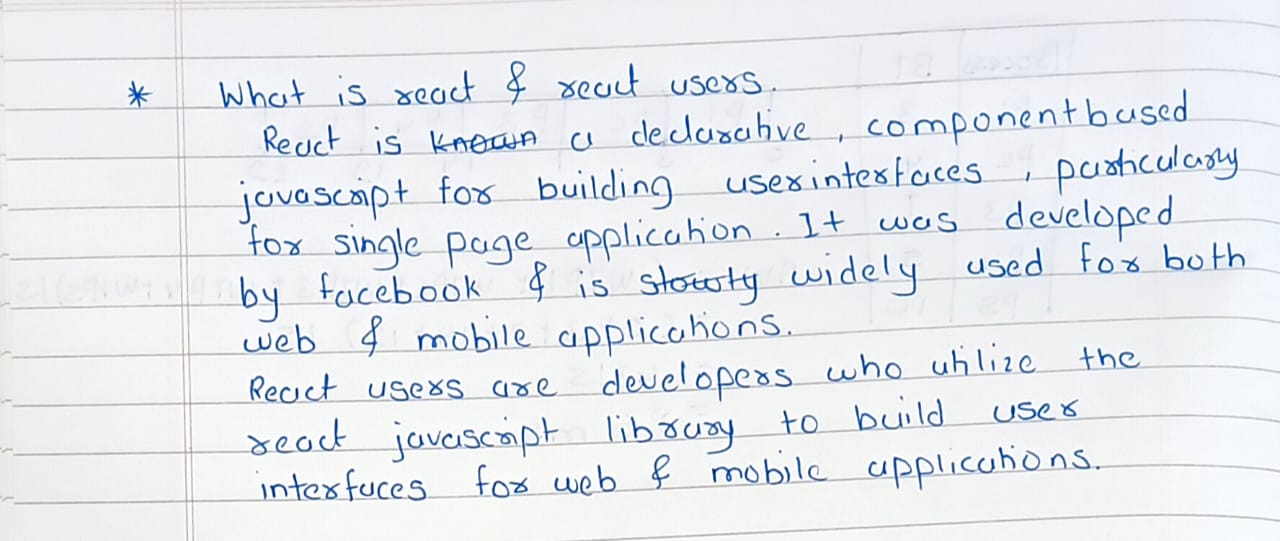 * What is react & react users.
React is known a declarative, componentbased
javascript for building userinterfaces, particularly
for single page application. It was developed
by facebook & is slowly widely used for both
web & mobile applications.
React users are developers who utilize the
react javascript library to build user
interfaces for web & mobile applications.